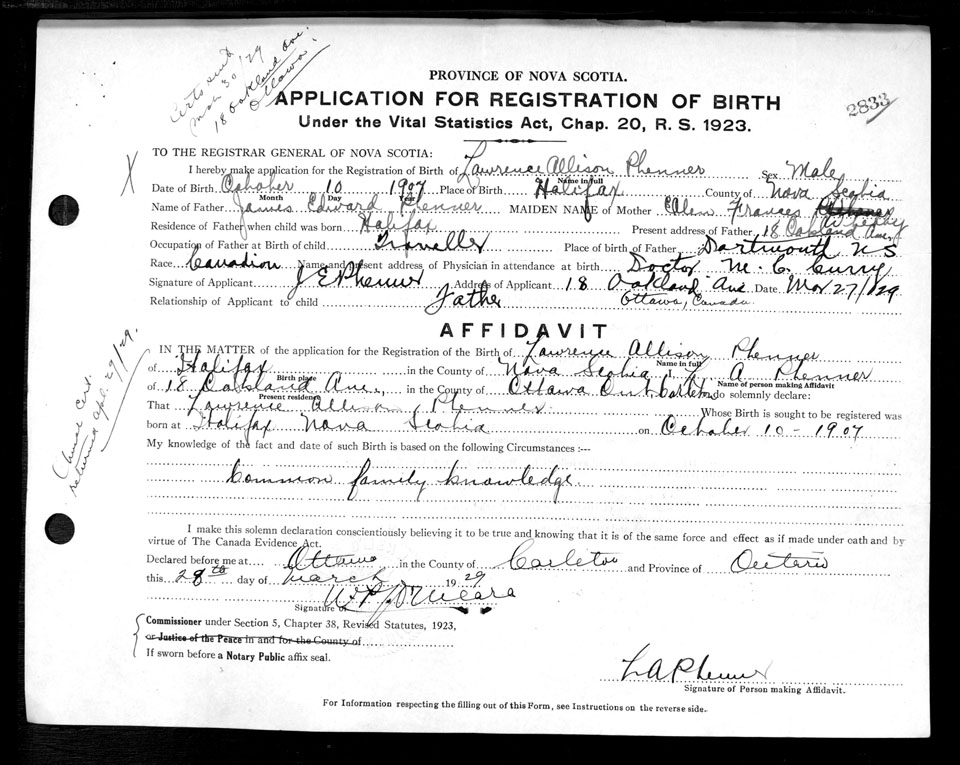 Certs sent
Mch 30/29
18 Oakland Ave.
Ottawa.
PROVINCE OF NOVA SCOTIA.
APPLICATION FOR REGISTRATION OF BIRTH
2833
Under the Vital Statistics Act, Chap. 20, R. S. 1923.
X
TO THE REGISTRAR GENERAL OF NOVA SCOTIA:
I hereby make application for the Registration of Birth of Lawrence Allison Phenner Sex Male
Name in full
Date of Birth October 10 1907 Place of Birth Halifax County of Nova Scotia
Month Day Year
Name of Father James Edward Phenner MAIDEN NAME of Mother Frances
Residence of Father when child was born Halifax Present address of Father 18 Oakland Ave.
Occupation of Father at Birth of child Traveller Place of birth of Father Dartmouth N S
Race Canadian Name and present address of Physician in attendance at birth Doctor M. C. Curry
Signature of Applicant J E Phenner Address of Applicant 18 Oakland Ave Date Mar 27/1929
Ottawa, Canada
Relationship of Applicant to child Father
AFFIDAVIT
IN THE MATTER of the application for the Registration of the Birth of Lawrence Allison Phenner
Name in full
of Halifax in the County of Nova Scotia I, L A Phenner
Birth place Name of person making Affidavit
of 18 Oakland Ave., in the County of Ottawa Ont. Carleton do solemnly declare:
Present residence
That Lawrence Allison Phenner Whose Birth is sought to be registered was
born at Halifax Nova Scotia on October 10 - 1907
My knowledge of the fact and date of such Birth is based on the following Circumstances :—
Common family knowledge.
returned Apl. 29/29.
I make this solemn declaration conscientiously believing it to be true and knowing that it is of the same force and effect as if made under oath and by
virtue of The Canada Evidence Act.
Declared before me at Ottawa in the County of Carleton and Province of Ontario
this 28th day of March 1929
Signature of
Commissioner under Section 5, Chapter 38, Revised Statutes, 1923,
or Justice of the Peace in and for the County of
If sworn before a Notary Public affix seal.
L A Phenner
Signature of Person making Affidavit.
For Information respecting the filling out of this Form, see Instructions on the reverse side.